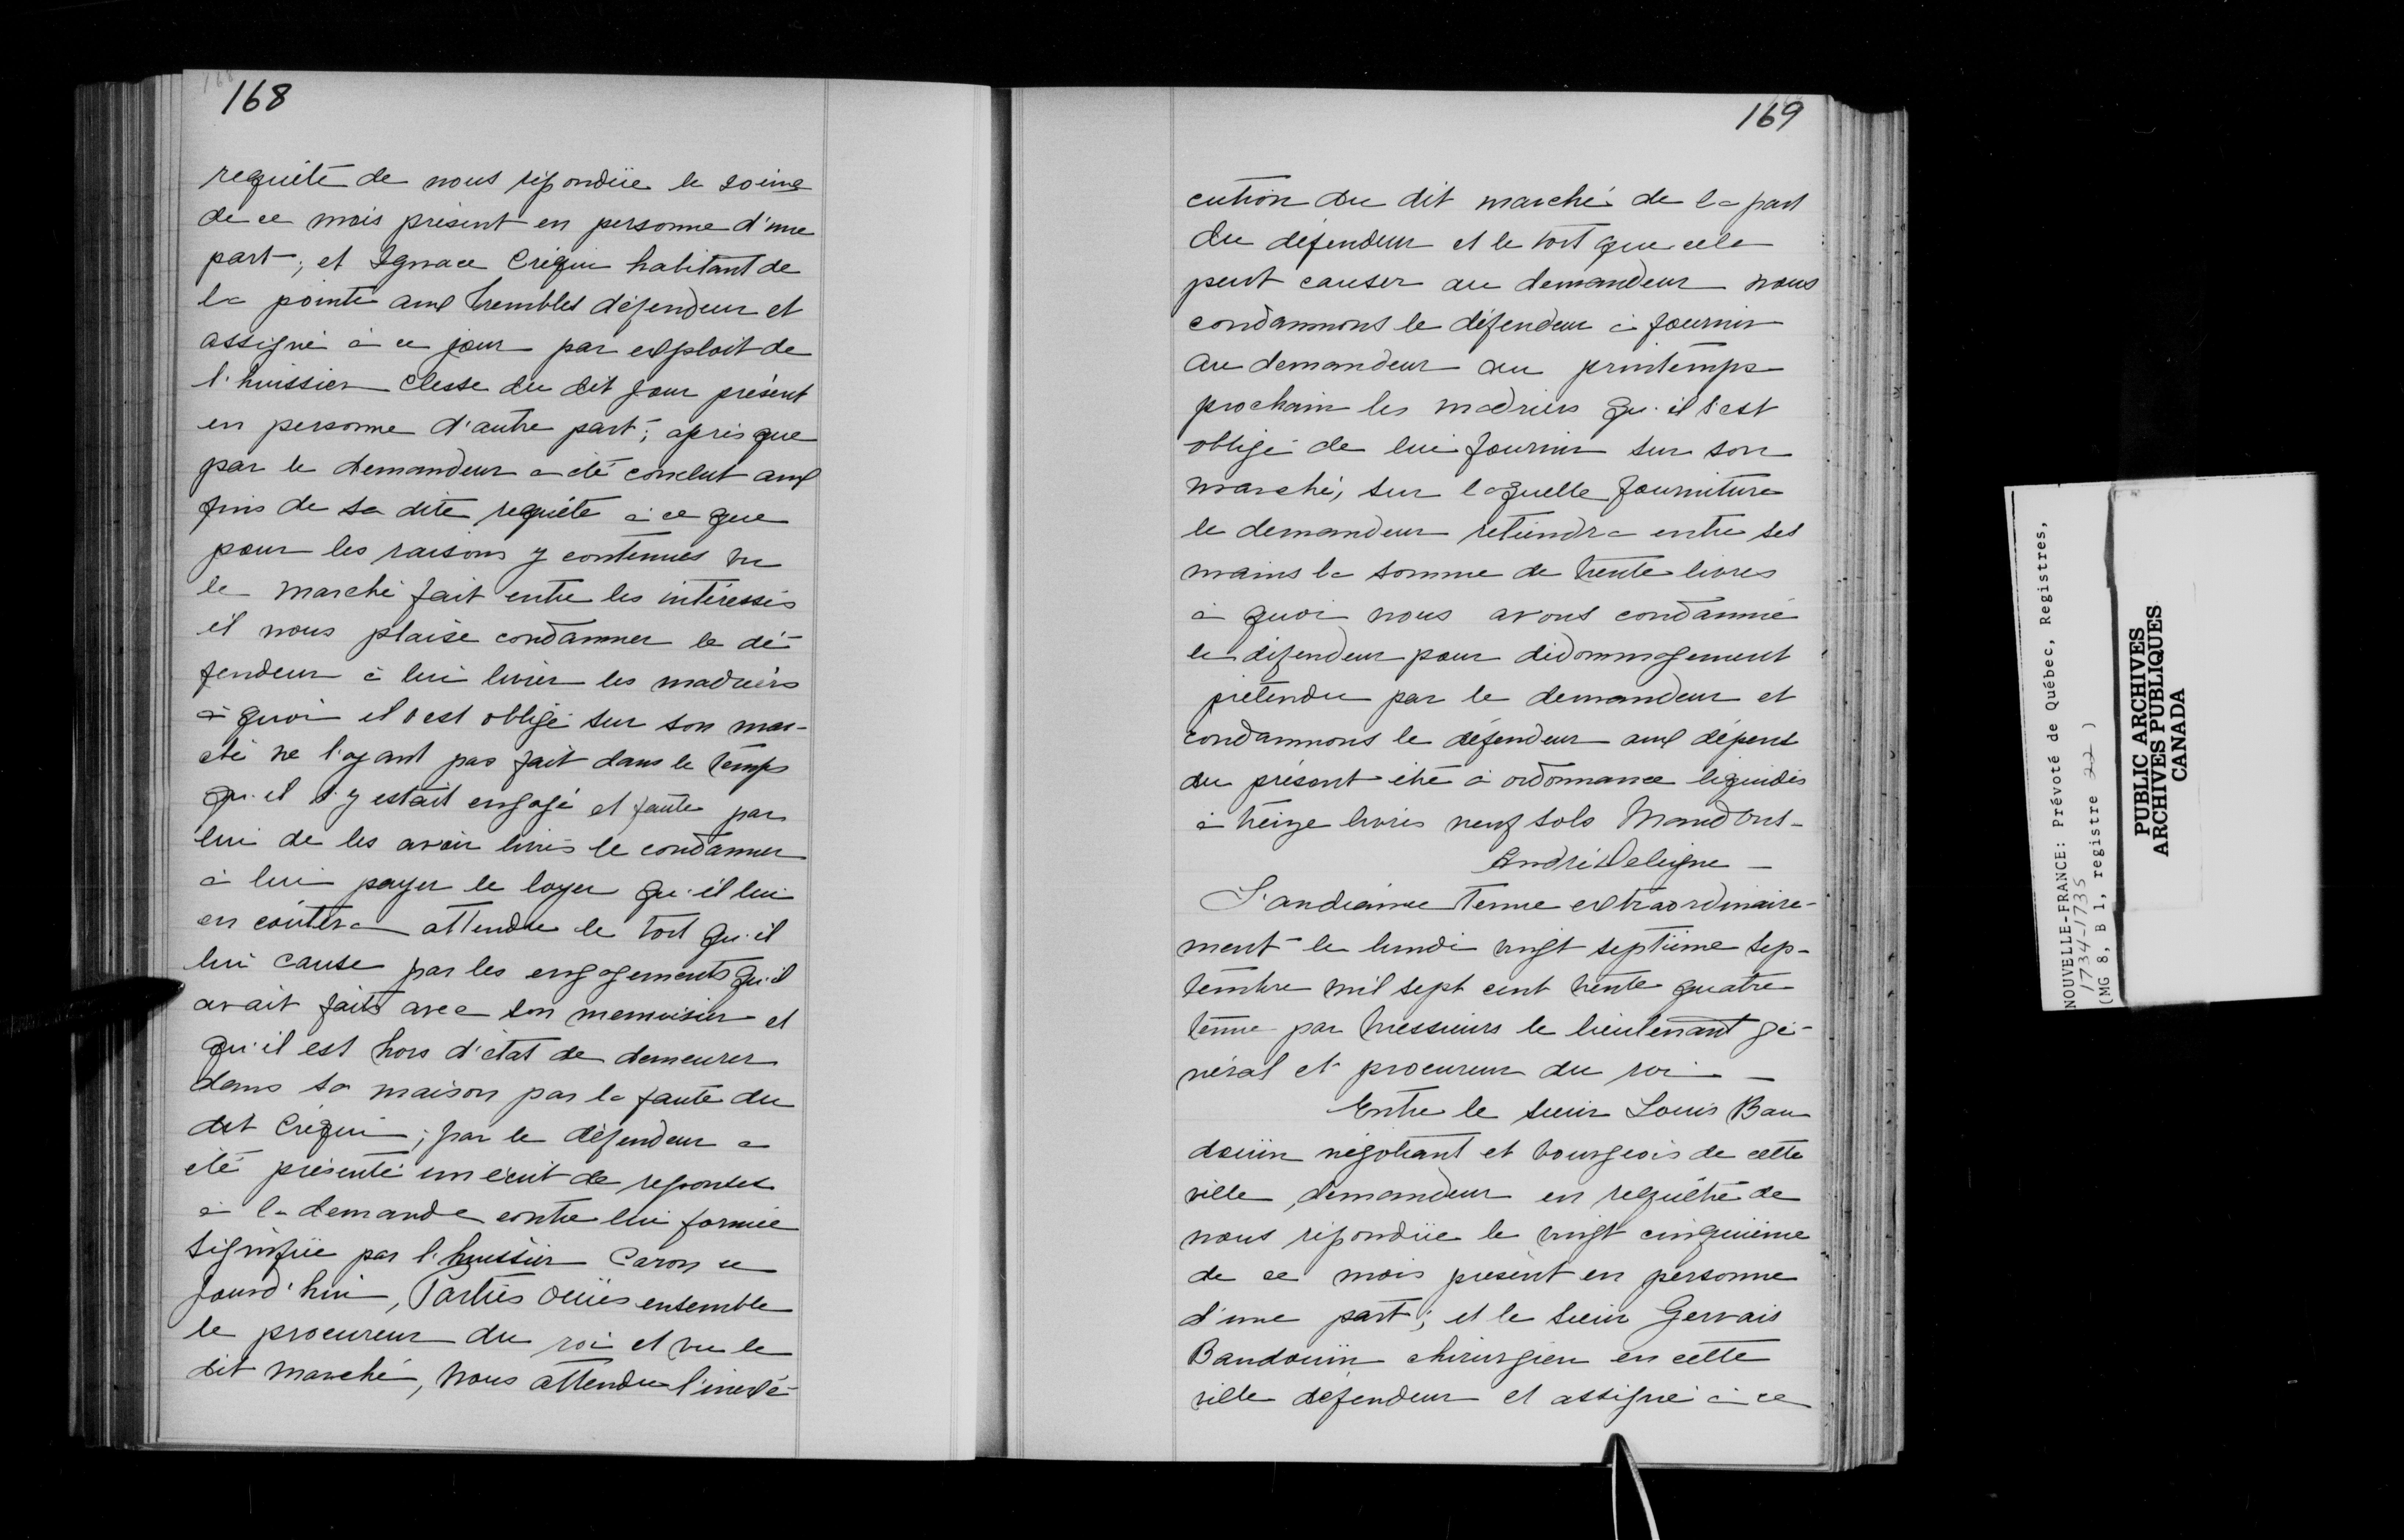 168
requête de nous répondüe le
de ce mois présent en personne d'une
part; et Ignace Créquin habitant de
la pointe aux trembles défendeur et
assigné à ce jour par exploit de
l'huissier Clesse du dit jour présent
en personne d'autre part; après que
par le demandeur a été conclut aux
fins de sa dite requête à ce que
pour les raisons y contenues vu
le marché fait entre les intéressés
il nous plaise condamner le dé-
fendeur à lui livrer les madriers
à quoi il s'est obligé sur son mar-
ché ne l'ayant pas fait dans le temps
qu'il s'y estait engagé et faute par
lui de les avoir livrés le condamner
à lui payer le loyer qu'il lui
en coûtera attendu le tort qu'il
lui cause par les engagements qu'il
avait faits avec son menuisier et
qu'il est hors d'état de demeurer
dans sa maison par la faute du
dit Créquin; par le défendeur a
été présenté un écrit de reponses
à la demande contre lui formée
signifiée par l'huissier Caron ce
jourd'hui, Parties ouïes ensemble
le procureur du roi et vu le
dit marché, nous attendu l'inexé-
169
cution du dit marché de la part
du défendeur et le tort que cela
peut causer au demandeur nous
condamnons le défendeur à fournir
au demandeur au printemps
prochain les madriers qu'il s'est
obligé de lui fournir sur son
marché, sur laquelle fourniture
le demandeur retiendra entre ses
mains la somme de trente livres
à quoi nous avons condamné
le défendeur pour dédommagement
prétendu par le demandeur et
condamnons le défendeur aux dépens
du présent été à ordonnance liquidés
à treize livres neuf sols Mandons-
André Deleigne —
L'audiance Tenue extraordinaire-
ment le lundi vingt septième sep-
tembre mil sept cent trente quatre
tenue par messieurs le lieutenant gé-
néral et procureur du roi —
Entre le sieur Louis Bau
doüin négotiant et bourgeois de cette
ville, demandeur en requête de
nous répondüe le vingt cinquième
de ce mois présent en personne
d'une part; et le sieur Gervais
Baudoüin chirurgien en cette
ville défendeur et assigné à ce
NOUVELLE-FRANCE: Prévôté de Québec, Registres,
1734-1735
(MG 8, B 1, registre 22 )
PUBLIC ARCHIVES
ARCHIVES PUBLIQUES
CANADA